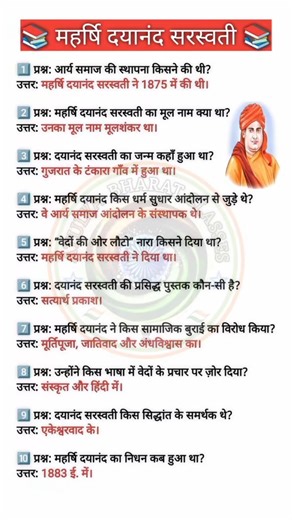 📚 महर्षि दयानंद सरस्वती 📚
1 प्रश्न: आर्य समाज की स्थापना किसने की थी?
उत्तर: महर्षि दयानंद सरस्वती ने 1875 में की थी।
2 प्रश्न: महर्षि दयानंद सरस्वती का मूल नाम क्या था?
उत्तर: उनका मूल नाम मूलशंकर था।
3 प्रश्न: दयानंद सरस्वती का जन्म कहाँ हुआ था?
उत्तर: गुजरात के टंकारा गाँव में हुआ था।
4 प्रश्न: महर्षि दयानंद किस धर्म सुधार आंदोलन से जुड़े थे?
उत्तर: वे आर्य समाज आंदोलन के संस्थापक थे।
5 प्रश्न: "वेदों की ओर लौटो" नारा किसने दिया था?
उत्तर: महर्षि दयानंद सरस्वती ने दिया था।
6 प्रश्न: दयानंद सरस्वती की प्रसिद्ध पुस्तक कौन-सी है?
उत्तर: सत्यार्थ प्रकाश।
7 प्रश्न: महर्षि दयानंद ने किस सामाजिक बुराई का विरोध किया?
उत्तर: मूर्तिपूजा, जातिवाद और अंधविश्वास का।
8 प्रश्न: उन्होंने किस भाषा में वेदों के प्रचार पर ज़ोर दिया?
उत्तर: संस्कृत और हिंदी में।
9 प्रश्न: दयानंद सरस्वती किस सिद्धांत के समर्थक थे?
उत्तर: एकेश्वरवाद के।
10 प्रश्न: महर्षि दयानंद का निधन कब हुआ था?
उत्तर: 1883 ई. में।